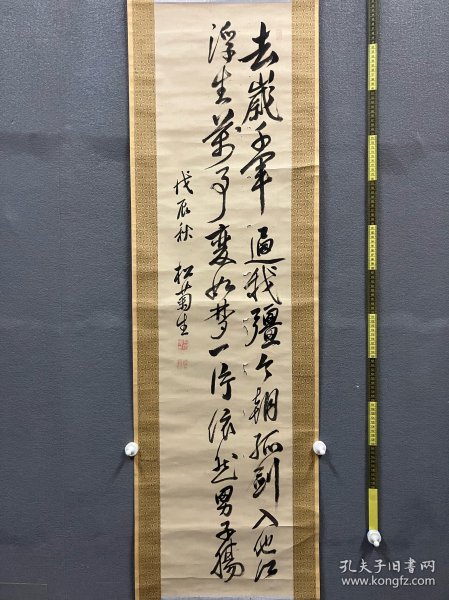 去歲千軍逼我疆今朝孤劍入他鄉
浮生萬事變如夢一片依然男子腸
戊辰秋 松菊生
孔夫子旧书网
www.kongfz.com